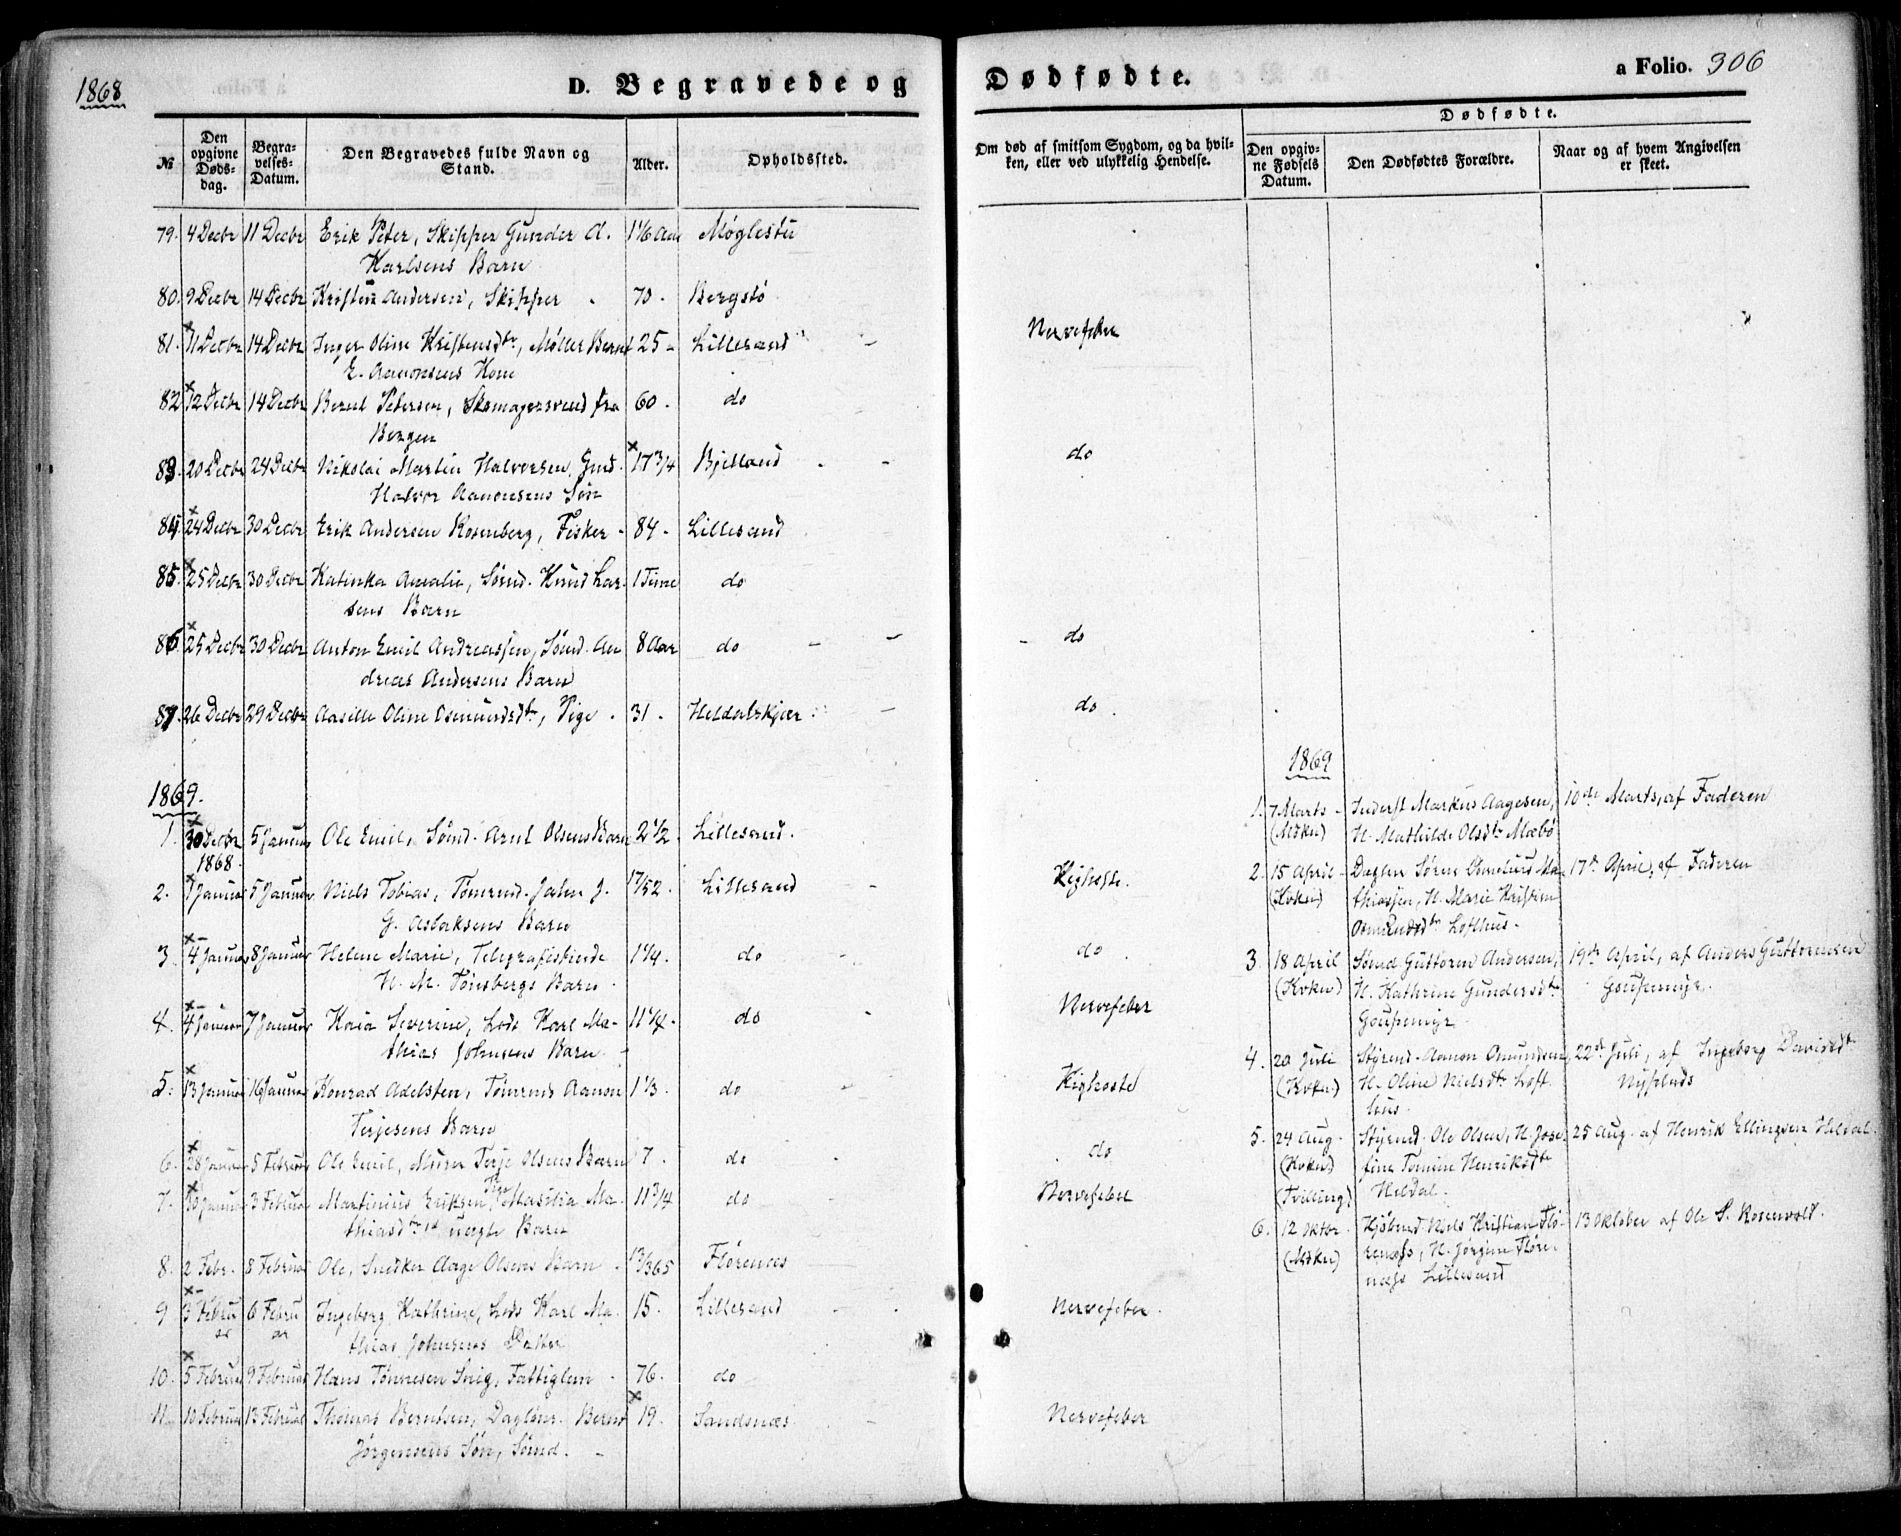 1868
D. Begravede og Dødfødte.
a Folio. 306
№
Den opgivne Døds-dag.
Begra-velses-Datum.
Den Begravedes fulde Navn og Stand.
Alder.
Opholdssted.
Om død af smitsom Sygdom, og da hvil-ken, eller ved ulykkelig Hendelse.
Dødfødte.
Den opgiv-ne Fødsels Datum.
Den Dødfødtes Forældre.
Naar og af hvem Angivelsen er skeet.
79. 4 Decbr 11 Decbr Erik Peter, Skipper Gunder A. 1 1/6 Aar Møglestu
Karlsens Barn
80. 9 Decbr 14 Decbr Kristen Andersen, Skipper 70. Bergstø
81. 11 Decbr 14 Decbr Inger Oline Kristensdtr, Møller Bernt 25 - Lillesand - Nervefeber
E. Aanonsens Kone
82 12 Decbr 14 Decbr Bernt Petersen, Skomagersvend fra 60. do
Bergen
83. 20 Decbr 24 Decbr Nikolai Martin Halvorsen, Gmd. 17 3/4 Bjelland - do
Halvor Aanonsens Søn
84 24 Decbr 30 Decbr Erik Andersen Rosenberg, Fisker - 84 - Lillesand
85. 25 Decbr 30 Decbr Katinka Amalie, Sømd. Knud Lar- 1 Time do
sens Barn
86. 25 Decbr 30 Decbr Anton Emil Andreassen, Sømd. An 8 Aar do - do
dreas Andersens Barn
87. 26 Decbr 29 Decbr Aasille Oline Osmundsdtr, Pige. 31. Heldalskjær - do.
1869.
1. 30 Decbr 5 Januar Ole Emil, Sømd. Arnt Olsens Barn 2 1/2. Lillesand.
1868.
2. 1 Januar 5 Januar Niels Tobias, Tømmd. John J. 17/52. Lillesand - Kighoste.
G. Aslaksens Barn
3. 4 Januar 8 Januar Helene Marie, Telegrafistinde 1 1/4. do - do
N. M. Tønsbergs Barn.
4. 4 Januar 7 Januar Kaia Severine, Lods Karl Ma- 11 1/4. do Nervefeber
thias Johnsens Barn.
5. 13 Januar 16 Januar Konrad Adelsten, Tømmd Aanon 1 1/3. do Kighoste
Terjesens Barn
6. 28 Januar 5 Februar Ole Emil, Murer Terje Olsens Barn 7. do do
7. 30 Januar 3 Februar Martinius Eriksen, Masilia Ma- 11 3/4 do Nervefeber
thiasdtrs uægte Barn
8. 2 Febr. 8 Februar Ole, Snedker Aage Olsens Barn. 13/365 Florenes
9 3 Februar 6 Februar Ingeborg Kathrine, Lods Karl Ma- 15. Lillesand - Nervefeber.
thias Johnsens Datter
10. 5 Februar 9 Februar Hans Tønnesen Snig, Fattiglem - 76. do
11. 10 Februar 13 Februar Thomas Berntsen, Dagløner Bernt 19. Sandsnæs - Nervefeber
Jørgensens Søn, Sømd. -
1869
1. 7 Marts - Inderst Markus Aagesen, 10de Marts, af Faderen
(Mskn) H. Mathilde Olsdtr Mæbø
2. 15 April - Dagløn Søren Cornelius Ma- 17de April, af Faderen
(Kvkn) thiassen, H. Marie Kristine
Osmundsdtr Lofthus.
3. 18 April Sømd Guttorm Andersen, 19de April, af Anders Guttormsen
(Kvkn) H. Kathrine Gundersdtr Goupemyr.
Goupemyr
4. 20 Juli Styrmd. Aanon Omundsen, 22de Juli, af Ingeborg Davidsdtr
(Kvkn) H. Oline Nielsdtr Loft Nypluds
hus.
5. 24 Aug. Styrmd. Ole Olsen, H. Jose- 25 Aug. af Henrik Ellingsen Heldal.
(Kvkn) fine Tomine Henriksdtr
(Tvilling) Heldal.
6. 12 Oktbr. Kjøbmd Niels Kristian Flø- 13 Oktober af Ole S. Rosenvold.
(Mskn) renæss, H. Jørgine Fløre-
næss Lillesand